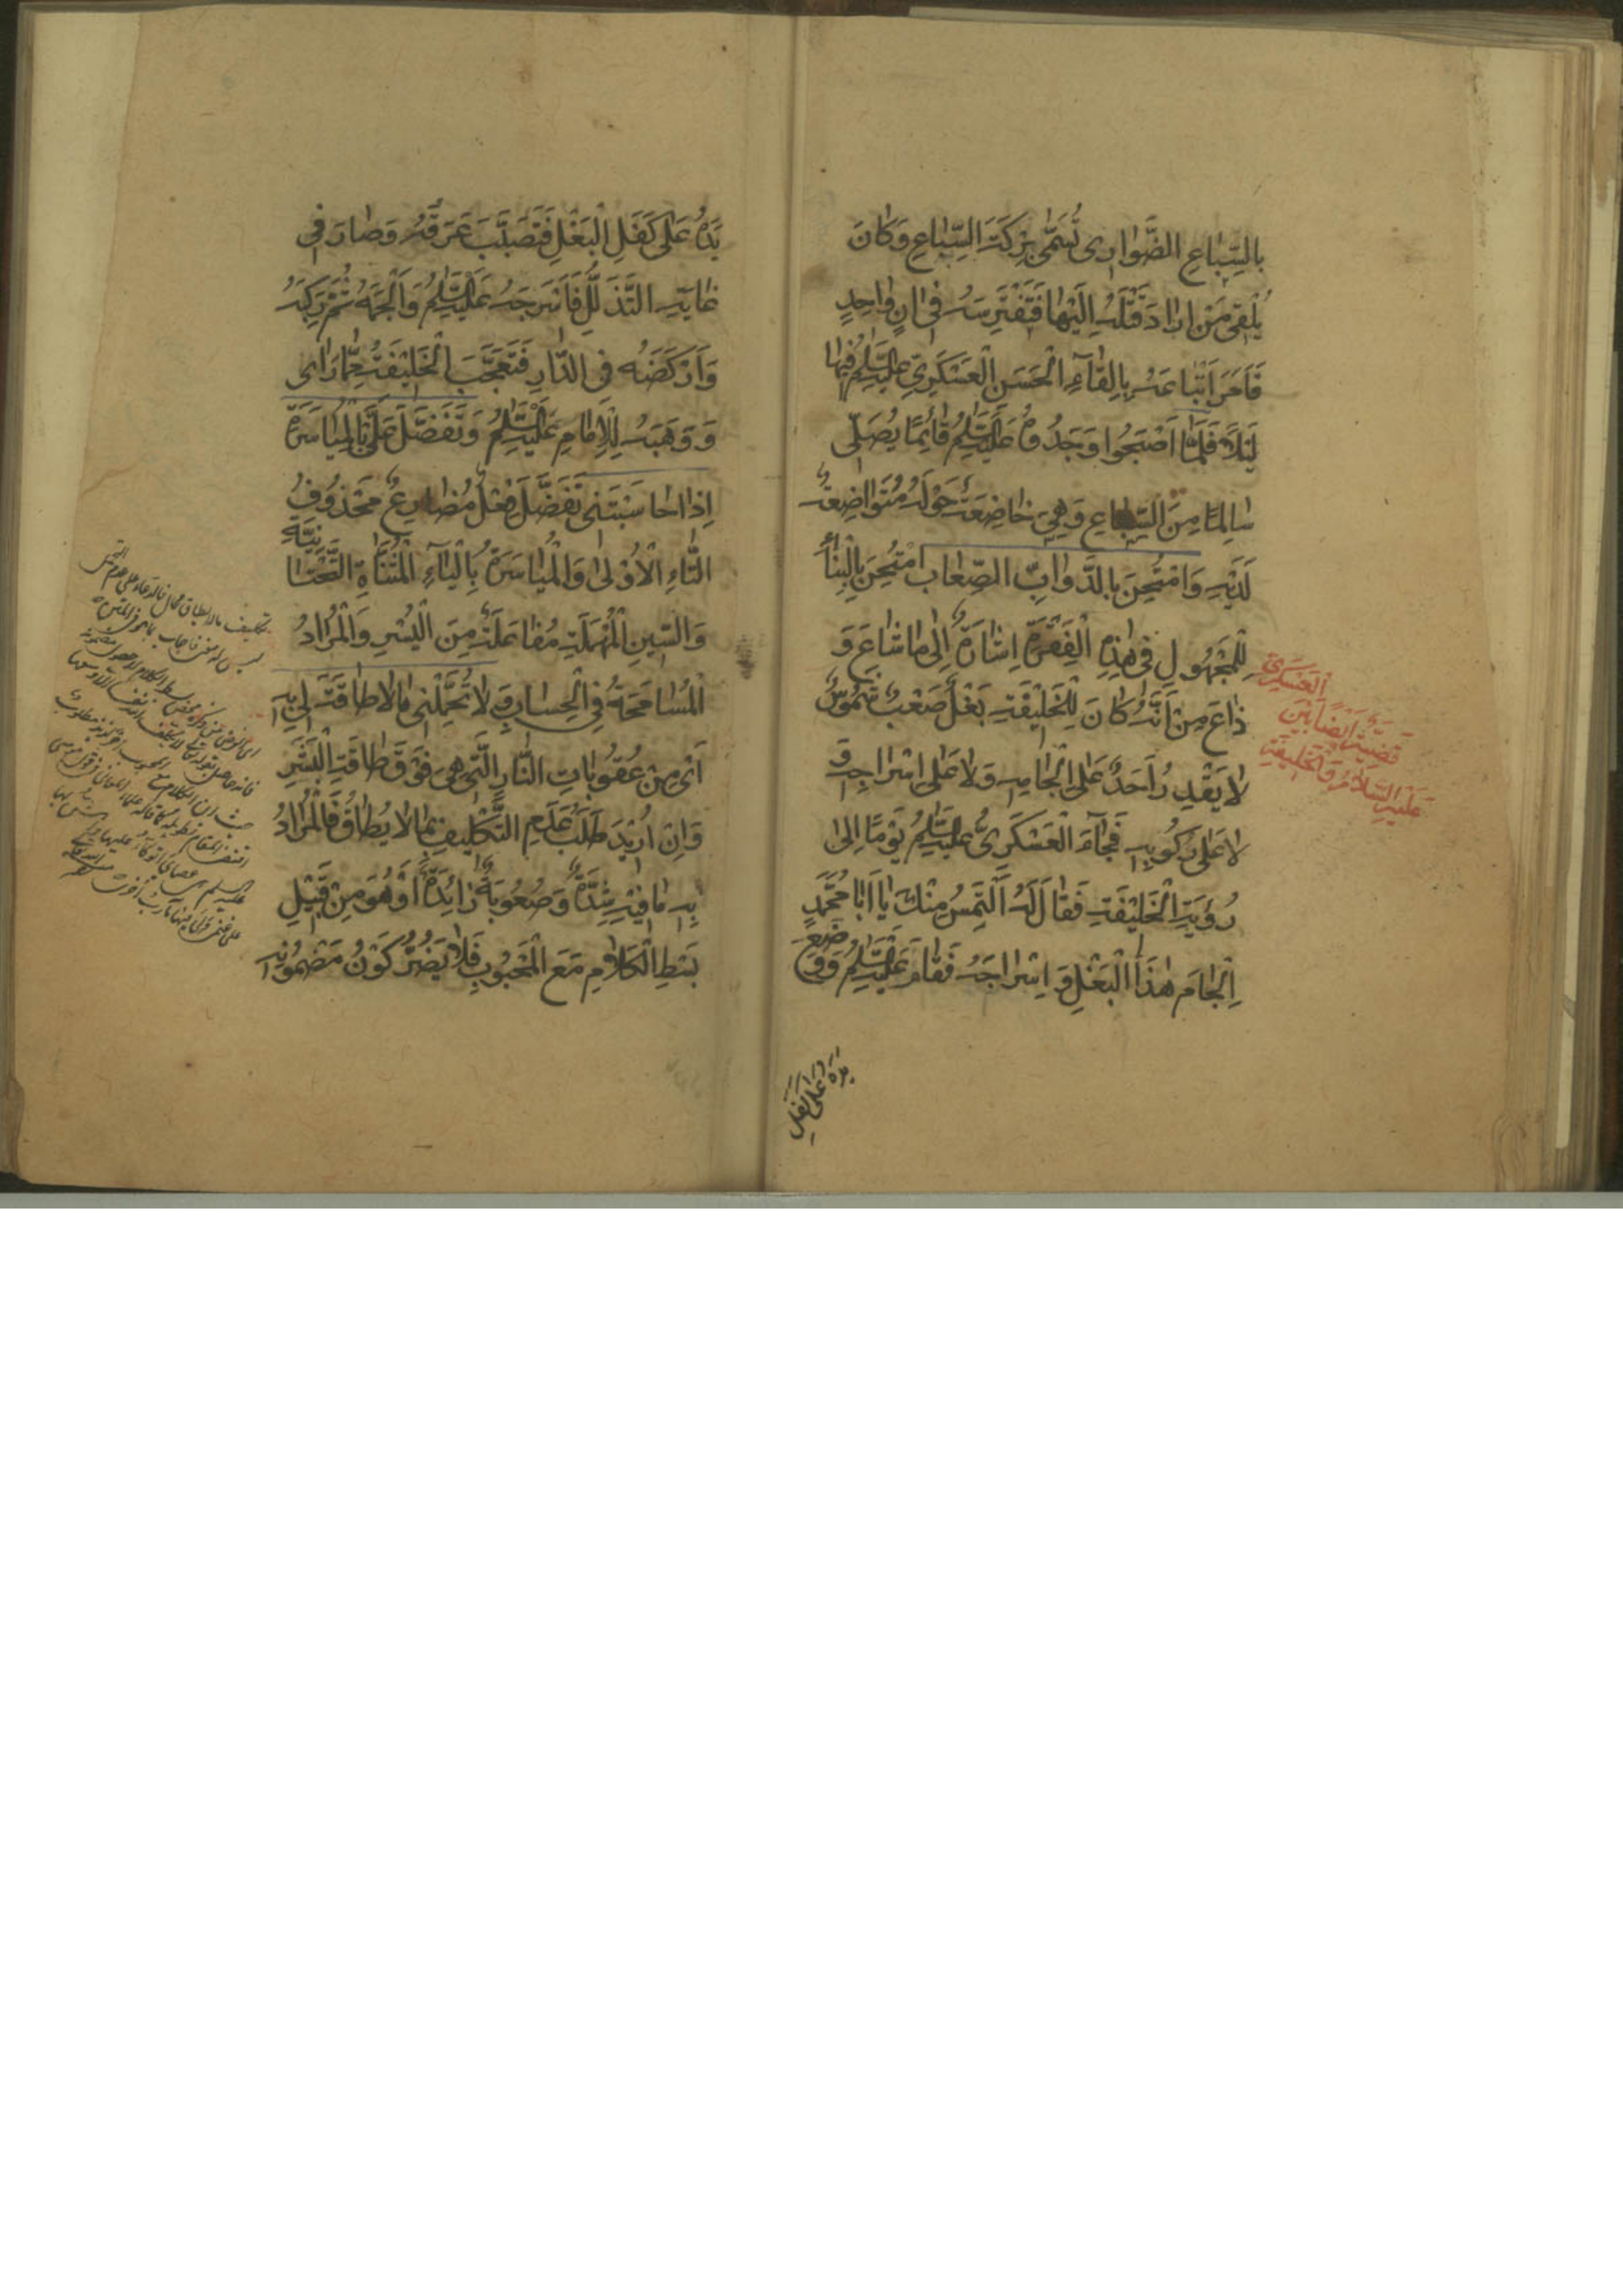 بِالسِّبَاعِ الضَّوَارِى تُسَمّٰى بِرْكَةَ السِّبَاعِ وَكَانَ
يُلْقِى مَنْ اَرَادَ قَتْلَهُ اِلَيْهَا فَتَفْتَرِسَهُ فِى اٰنٍ وَاحِدٍ
فَاَمَرَ اَتْبَاعَهُ بِاِلْقَآءِ الْحَسَنِ الْعَسْكَرِىِّ عَلَيْهِ السَّلَامُ فِيهَا
لَيْلًا فَلَمَّا اَصْبَحُوا وَجَدُوهُ عَلَيْهِ السَّلَامُ قَائِمًا يُصَلِّى
سَالِمًا مِنَ السِّبَاعِ وَهِىَ خَاضِعَةٌ حَوْلَهُ مُتَوَاضِعَةٌ
لَدَيْهِ وَامْتُحِنَ بِالدَّوَابِّ الصِّعَابِ امْتُحِنَ بِالْبِنَآءِ
لِلْمَجْهُولِ فِى هٰذِهِ الْفِقْرَةِ اِشَارَةٌ اِلٰى مَا شَاعَ وَ
ذَاعَ مِنْ اَنَّهُ كَانَ لِلْخَلِيْفَةِ بَغْلٌ صَعْبٌ شَمُوسٌ
لَا يَقْدِرُ اَحَدٌ عَلٰى اِلْجَامِهِ وَلَا عَلٰى اِسْرَاجِهِ وَ
لَا عَلٰى رُكُوبِهِ فَجَآءَ الْعَسْكَرِىُّ عَلَيْهِ السَّلَامُ يَوْمًا اِلٰى
رُؤْيَةِ الْخَلِيْفَةِ فَقَالَ لَهُ اَلْتَمِسُ مِنْكَ يَا اَبَا مُحَمَّدٍ
اِلْجَامَ هٰذَا الْبَغْلِ وَ اِسْرَاجَهُ فَقَامَ عَلَيْهِ السَّلَامُ وَوَضَعَ
يَدَهُ عَلٰى كَفَلِ
قَضِيَّةٌ اَيْضًا بَيْنَ الْعَسْكَرِىِّ
عَلَيْهِ السَّلَامُ وَالْخَلِيفَةِ
يَدَهُ عَلٰى كَفَلِ الْبَغْلِ فَتَصَبَّبَ عَرَقُهُ وَصَارَ فِى
غَايَةِ التَّذَلُّلِ فَاَسْرَجَهُ عَلَيْهِ السَّلَامُ وَاَلْجَمَهُ ثُمَّ رَكِبَهُ
وَاَرْكَضَهُ فِى الدَّارِ فَتَعَجَّبَ الْخَلِيْفَةُ مِمَّا رَاٰى
وَ وَهَبَهُ لِلْاِمَامِ عَلَيْهِ السَّلَامُ وَتَفَضَّلَ عَلَىَّ بِالْمُيَاسَرَةِ
اِذَا حَاسَبْتَنِى تَفَضَّلَ فِعْلٌ مُضَارِعٌ مَحْذُوفُ
التَّاءِ الْاُوْلٰى وَالْمُيَاسَرَةُ بِالْيَآءِ الْمُثَنَّاةِ التَّحْتَانِيَّةِ
وَالسِّينِ الْمُهْمَلَةِ مُفَاعَلَةٌ مِنَ الْيُسْرِ وَالْمُرَادُ
الْمُسَامَحَةُ فِى الْحِسَابِ وَ لَا تُحَمِّلْنِى مَا لَا طَاقَةَ لِى بِهِ
اَىْ مِنْ عُقُوبَاتِ النَّارِ الَّتِى هِىَ فَوْقَ طَاقَةِ الْبَشَرِ
وَاِنْ اُرِيْدَ طَلَبُ عَدَمِ التَّكْلِيفِ بِمَا لَا يُطَاقُ فَالْمُرَادُ
بِهِ مَا فِيْهِ شِدَّةٌ وَصُعُوبَةٌ زَائِدَةٌ اَوْ هُوَ مِنْ قَبِيْلِ
بَسْطِ الْكَلَامِ مَعَ الْمَحْبُوبِ فَلَا يَضُرُّ كَوْنُ مَضْمُونِهِ